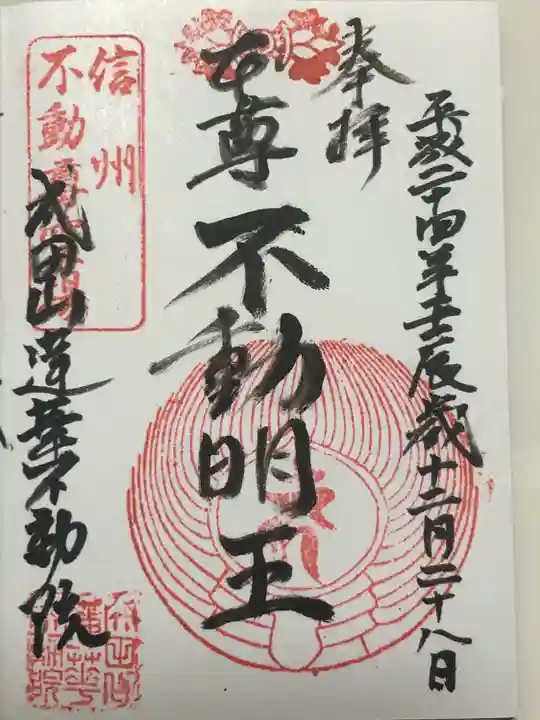 奉拝
平成二十四年壬辰歳十二月二十八日
本尊不動明王
信州
不動尊霊場
成田山蓮華不動院